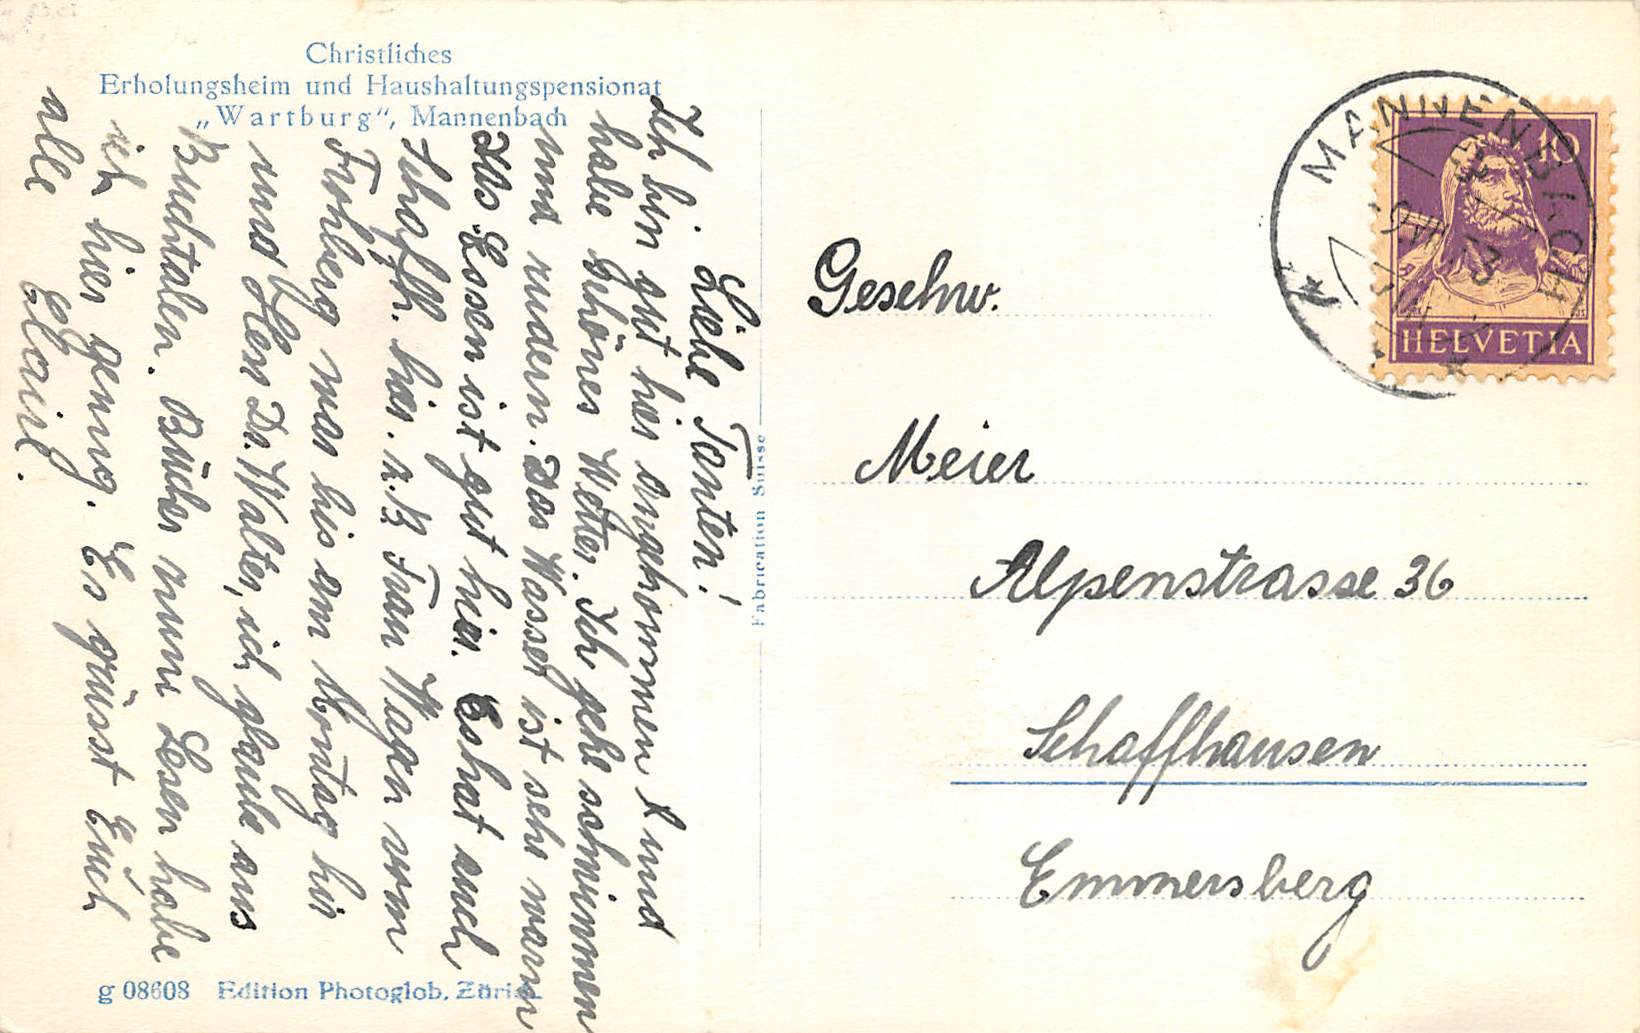 Christliches
Erholungsheim und Haushaltungspensionat
„Wartburg“, Mannenbach
Liebe Tanten!
Ich bin gut hier angekommen und
habe schönes Wetter. Ich gehe schwimmen
und rudern. Das Wasser ist sehr warm
Das Essen ist gut hier. Es hat auch
Schaffh. hier. z.B. Frau Wagen vom
Frohberg war bis am Montag hier
und Herr Dr. Walter, ich glaube aus
Buchtalen. Bücher zum Lesen habe
ich hier genug. Es grüsst Euch
alle
g 08608 Edition Photoglob, Zürich
Fabrication Suisse
Geschw.
Meier
Alpenstrasse 36
Schaffhausen
Emmersberg
MANNENBACH
10
HELVETIA